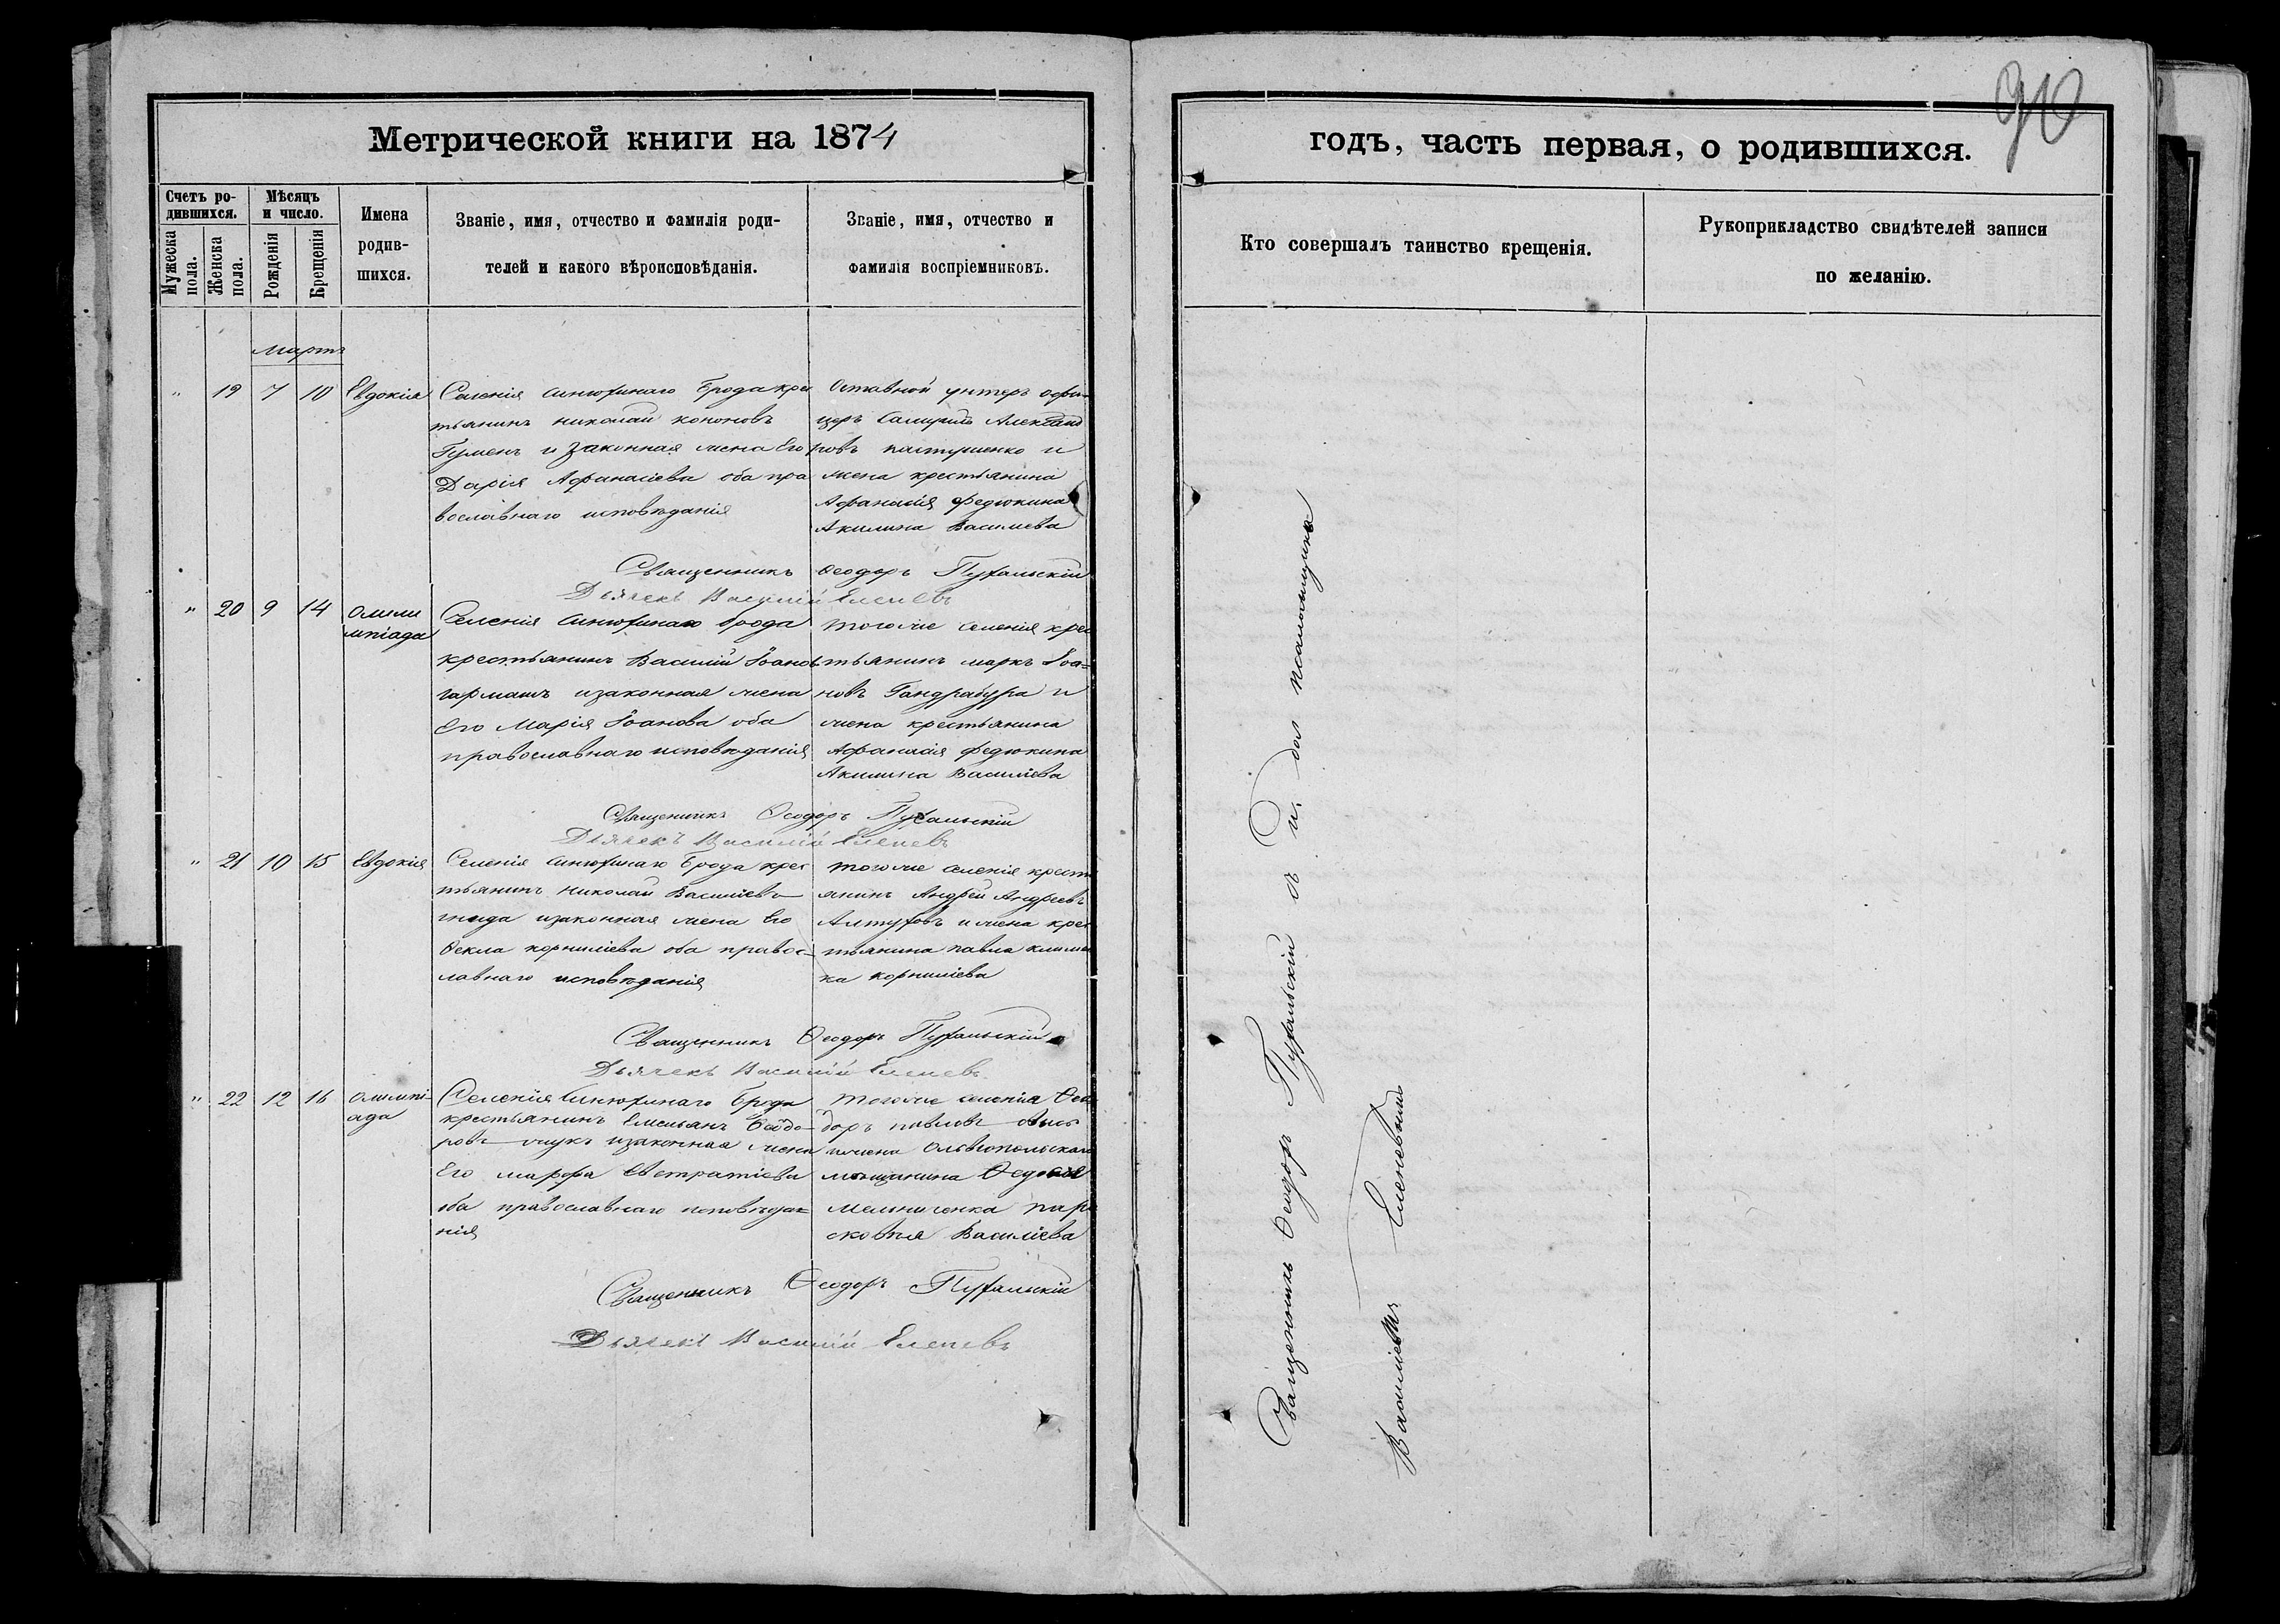 90
Метрической книги на 1874
годъ, часть первая, о родившихся.
Счетъ ро-
дившихся.
Мужеска пола.
Женска пола.
Мѣсяцъ
и число.
Рожденія
Крещенія
Имена
родив-
шихся.
Званіе, имя, отчество и фамилія роди-
телей и какого вѣроисповѣданія.
Званіе, имя, отчество и
фамилія воспріемниковъ.
Кто совершалъ таинство крещенія.
Рукоприкладство свидѣтелей записи
по желанію.
Мартъ
" 19 7 10 Евдокія
Селенія Синюхинаго Брода крес
тьянинъ Николай Кононовъ
Гуменъ и законная жена Его
Дарія Афанасіева оба пра
вославнаго исповѣданія
Отставной унтеръ офи-
церъ Александ
ровъ пастушенко и
жена крестьянина
Афанасія Федюкина
Акилина Василіева
Священникъ Ѳеодоръ Пухальскій
Дьячекъ Василій Еленевъ
" 20 9 14
мпіада
Селенія Синюхинаго Брода
крестьянинъ Василій Іоановъ
гармашъ и законная жена
Его Марія Іоанова оба
православнаго исповѣданія
того же селенія крес
тьянинъ Маркъ Іоа=
новъ Гандрабура и
жена крестьянина
Афанасія Федюкина
Акилина Василіева
Священникъ Ѳеодоръ Пухальскій
Дьячекъ Василій Еленевъ
" 21 10 15 Евдокія
Селенія Синюхинаго Брода крес
тьянинъ Николай Василіевъ
гнида и законная жена Его
Ѳекла Корниліева оба правос-
лавнаго исповѣданія
того же селенія крест
янинъ Андрей Андреевъ
Алтуховъ и жена крес
тьянина Павла
ка Корниліева
Священникъ Ѳеодоръ Пухальскій
Дьячекъ Василій Еленевъ
" 22 12 16 Олимпі-
ада
Селенія Синюхинаго Брода
крестьянинъ Емельянъ Ѳеодо-
ровъ и законная жена
Его Марфа Евстратіева
оба православнаго исповѣда=
нія
того же селенія Ѳео
доръ Павловъ
и жена Ольвіопольскаго
мѣщанина
Мельниченка Пара
сковія Василіева
Священникъ Ѳеодоръ Пухальскій
Дьячекъ Василій Еленевъ
Священникъ Ѳеодоръ Пухальскій съ и. дол псаломщика
Василіемъ Еленевымъ